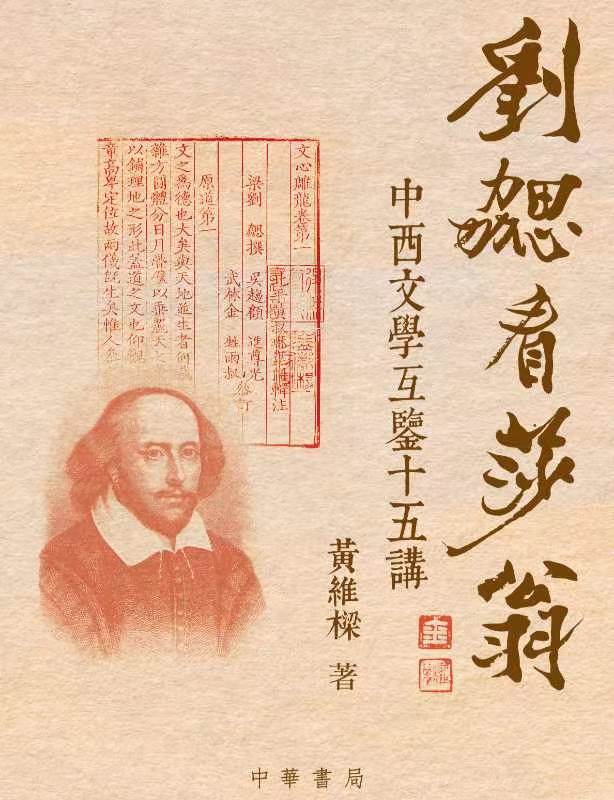 劉勰看莎翁
中西文學互鑒十五講
黃維樑 著
文心雕龍卷第一
輯注
梁劉 勰撰 吳趨顧 進尊光
武林金 甡雨叔
原道第一
文之爲德也大矣與天地並生者何哉
雜方圓體分日月疊璧以垂麗天之
以鋪理地之形此蓋道之文也仰觀
章高卑定位故兩儀旣生矣惟人參
中華書局